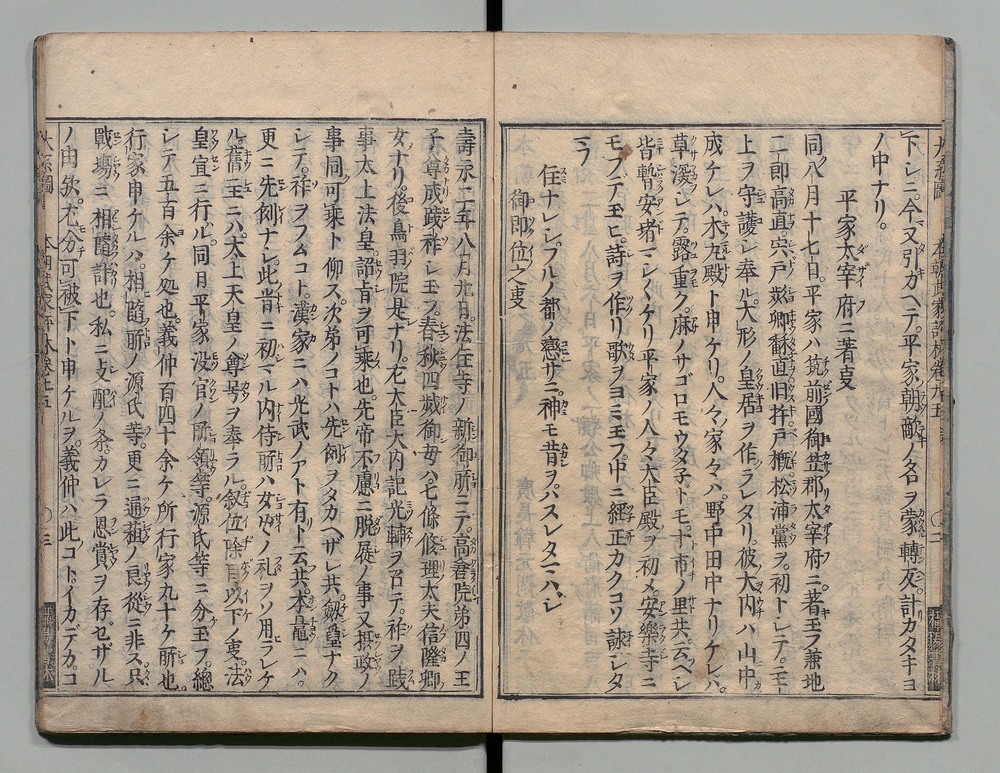 下シニ今又引カヘテ平家朝敵ノ名ヲ蒙轉反計カタキヨ
ノ中ナリ
平家太宰府ニ著夏
同八月十七日平家ハ筑前國御笠郡太宰府ニ著玉フ兼地
二郎高直宍戸松浦黨ヲ初トシテ主
上ヲ守護シ奉ル大形ノ皇居ヲ作ラレタリ彼大内ハ山中
成ケレハ木丸殿ト申ケリ人々家々ハ野中田中ナリケレバ
草深シテ露重ク麻ノサゴロモウタ子トモ十市ノ里共云ベシ
皆暫安堵シ平家ノ人々大臣殿ヲ初メ安樂寺ニ
モフデ玉ヒ詩ヲ作リ歌ヲヨミ玉フ中ニ經正カクコソ詠シタ
マフ
住ナレシフルノ都ノ戀サニ神モ昔ヲハスレタマハシ
御即位之夏
壽永二年八月九日法住寺ノ新御所ニテ高倉院第四ノ王
子尊成踐祚シ玉フ春秋四歳御母ハ七條修理太夫信隆卿
女ナリ後鳥羽院是ナリ左大臣大内記光輔ヲ召テ祚ヲ踐
事太上法皇詔旨ヲ可乗也先帝不慮ニ脱屣ノ事又摂政ノ
事同可乗ト仰ス次第ノコトハ先例ヲタカヘザレ共劔璽ナク
シテ祚ヲフムコト漢家ニハ光武ノアト有ト云共本朝ニハ
更ニ先例ナシ此時ニ初マル内侍所ハ女官ノ礼ヲソ用ラレケ
ル舊主ニハ太上天皇ノ尊号ヲ奉ラル叙位除目以下ノ夏法
皇宣ニ行ル同月平家没官ノ所領等源氏等ニ分玉フ總
シテ五百余ケ処也義仲百四十余ケ所行家九十ケ所也
行家申ケルハ相隨所ノ源氏等更ニ通籍ノ良從ニ非ス只
戰場ニ相隨許也私ニ支配ノ条カレラ恩賞ヲ存セザル
ノ由欤尤分可被下ト申ケルヲ義仲ハ此コトイカデカコ